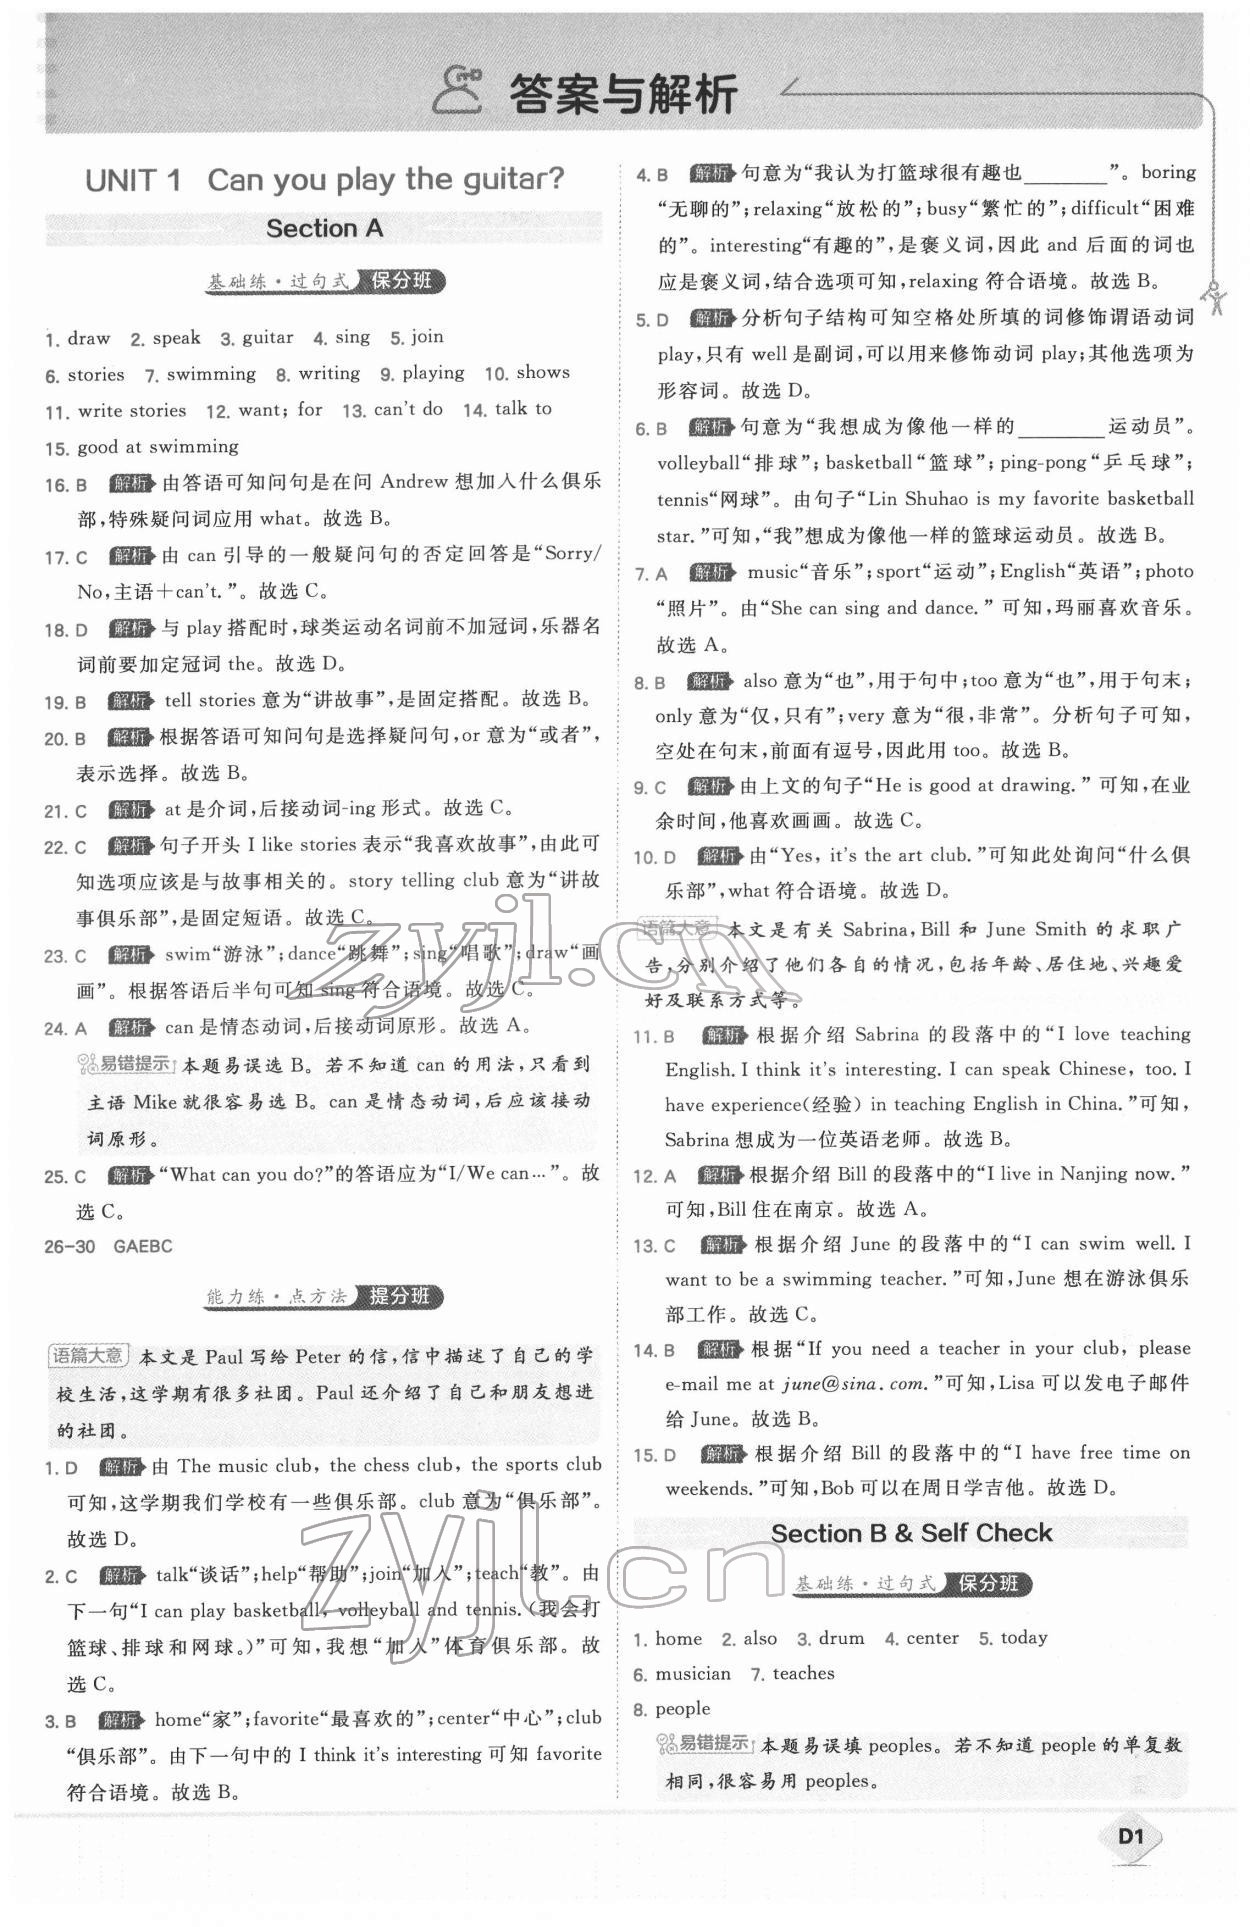 答案与解析
UNIT 1 Can you play the guitar?
Section A
基础练·过句式 保分班
1. draw 2. speak 3. guitar 4. sing 5. join
6. stories 7. swimming 8. writing 9. playing 10. shows
11. write stories 12. want; for 13. can't do 14. talk to
15. good at swimming
16. B 解析 由答语可知问句是在问 Andrew 想加入什么俱乐
部,特殊疑问词应用 what。故选 B。
17. C 解析 由 can 引导的一般疑问句的否定回答是“Sorry/
No,主语+can't.”。故选 C。
18. D 解析 与 play 搭配时,球类运动名词前不加冠词,乐器名
词前要加定冠词 the。故选 D。
19. B 解析 tell stories 意为“讲故事”,是固定搭配。故选 B。
20. B 解析 根据答语可知问句是选择疑问句,or 意为“或者”,
表示选择。故选 B。
21. C 解析 at 是介词,后接动词-ing 形式。故选 C。
22. C 解析 句子开头 I like stories 表示“我喜欢故事”,由此可
知选项应该是与故事相关的。story telling club 意为“讲故
事俱乐部”,是固定短语。故选 C。
23. C 解析 swim“游泳”;dance“跳舞”;sing“唱歌”;draw“画
画”。根据答语后半句可知 sing 符合语境。故选 C。
24. A 解析 can 是情态动词,后接动词原形。故选 A。
易错提示 本题易误选 B。若不知道 can 的用法,只看到
主语 Mike 就很容易选 B。can 是情态动词,后应该接动
词原形。
25. C 解析 “What can you do?”的答语应为“I/We can…”。故
选 C。
26-30 GAEBC
能力练·点方法 提分班
语篇大意 本文是 Paul 写给 Peter 的信,信中描述了自己的学
校生活,这学期有很多社团。Paul 还介绍了自己和朋友想进
的社团。
1. D 解析 由 The music club, the chess club, the sports club
可知,这学期我们学校有一些俱乐部。club 意为“俱乐部”。
故选 D。
2. C 解析 talk“谈话”;help“帮助”;join“加入”;teach“教”。由
下一句“I can play basketball, volleyball and tennis.(我会打
篮球、排球和网球。)”可知,我想“加入”体育俱乐部。故
选 C。
3. B 解析 home“家”;favorite“最喜欢的”;center“中心”;club
“俱乐部”。由下一句中的 I think it's interesting 可知 favorite
符合语境。故选 B。
4. B 解析 句意为“我认为打篮球很有趣也________”。boring
“无聊的”;relaxing“放松的”;busy“繁忙的”;difficult“困难
的”。interesting“有趣的”,是褒义词,因此 and 后面的词也
应是褒义词,结合选项可知,relaxing 符合语境。故选 B。
5. D 解析 分析句子结构可知空格处所填的词修饰谓语动词
play,只有 well 是副词,可以用来修饰动词 play;其他选项为
形容词。故选 D。
6. B 解析 句意为“我想成为像他一样的________运动员”。
volleyball“排球”;basketball“篮球”;ping-pong“乒乓球”;
tennis“网球”。由句子“Lin Shuhao is my favorite basketball
star.”可知,“我”想成为像他一样的篮球运动员。故选 B。
7. A 解析 music“音乐”;sport“运动”;English“英语”;photo
“照片”。由“She can sing and dance.”可知,玛丽喜欢音乐。
故选 A。
8. B 解析 also 意为“也”,用于句中;too 意为“也”,用于句末;
only 意为“仅,只有”;very 意为“很,非常”。分析句子可知,
空处在句末,前面有逗号,因此用 too。故选 B。
9. C 解析 由上文的句子“He is good at drawing.”可知,在业
余时间,他喜欢画画。故选 C。
10. D 解析 由“Yes, it's the art club.”可知此处询问“什么俱
乐部”,what 符合语境。故选 D。
语篇大意 本文是有关 Sabrina,Bill 和 June Smith 的求职广
告,分别介绍了他们各自的情况,包括年龄、居住地、兴趣爱
好及联系方式等。
11. B 解析 根据介绍 Sabrina 的段落中的“I love teaching
English. I think it's interesting. I can speak Chinese, too. I
have experience(经验) in teaching English in China.”可知,
Sabrina 想成为一位英语老师。故选 B。
12. A 解析 根据介绍 Bill 的段落中的“I live in Nanjing now.”
可知,Bill 住在南京。故选 A。
13. C 解析 根据介绍 June 的段落中的“I can swim well. I
want to be a swimming teacher.”可知,June 想在游泳俱乐
部工作。故选 C。
14. B 解析 根据“If you need a teacher in your club, please
e-mail me at june@sina.com.”可知,Lisa 可以发电子邮件
给 June。故选 B。
15. D 解析 根据介绍 Bill 的段落中的“I have free time on
weekends.”可知,Bob 可以在周日学吉他。故选 D。
Section B & Self Check
基础练·过句式 保分班
1. home 2. also 3. drum 4. center 5. today
6. musician 7. teaches
8. people
易错提示 本题易误填 peoples。若不知道 people 的单复数
相同,很容易用 peoples。
D1
zyjl.cn
zyjl.cn